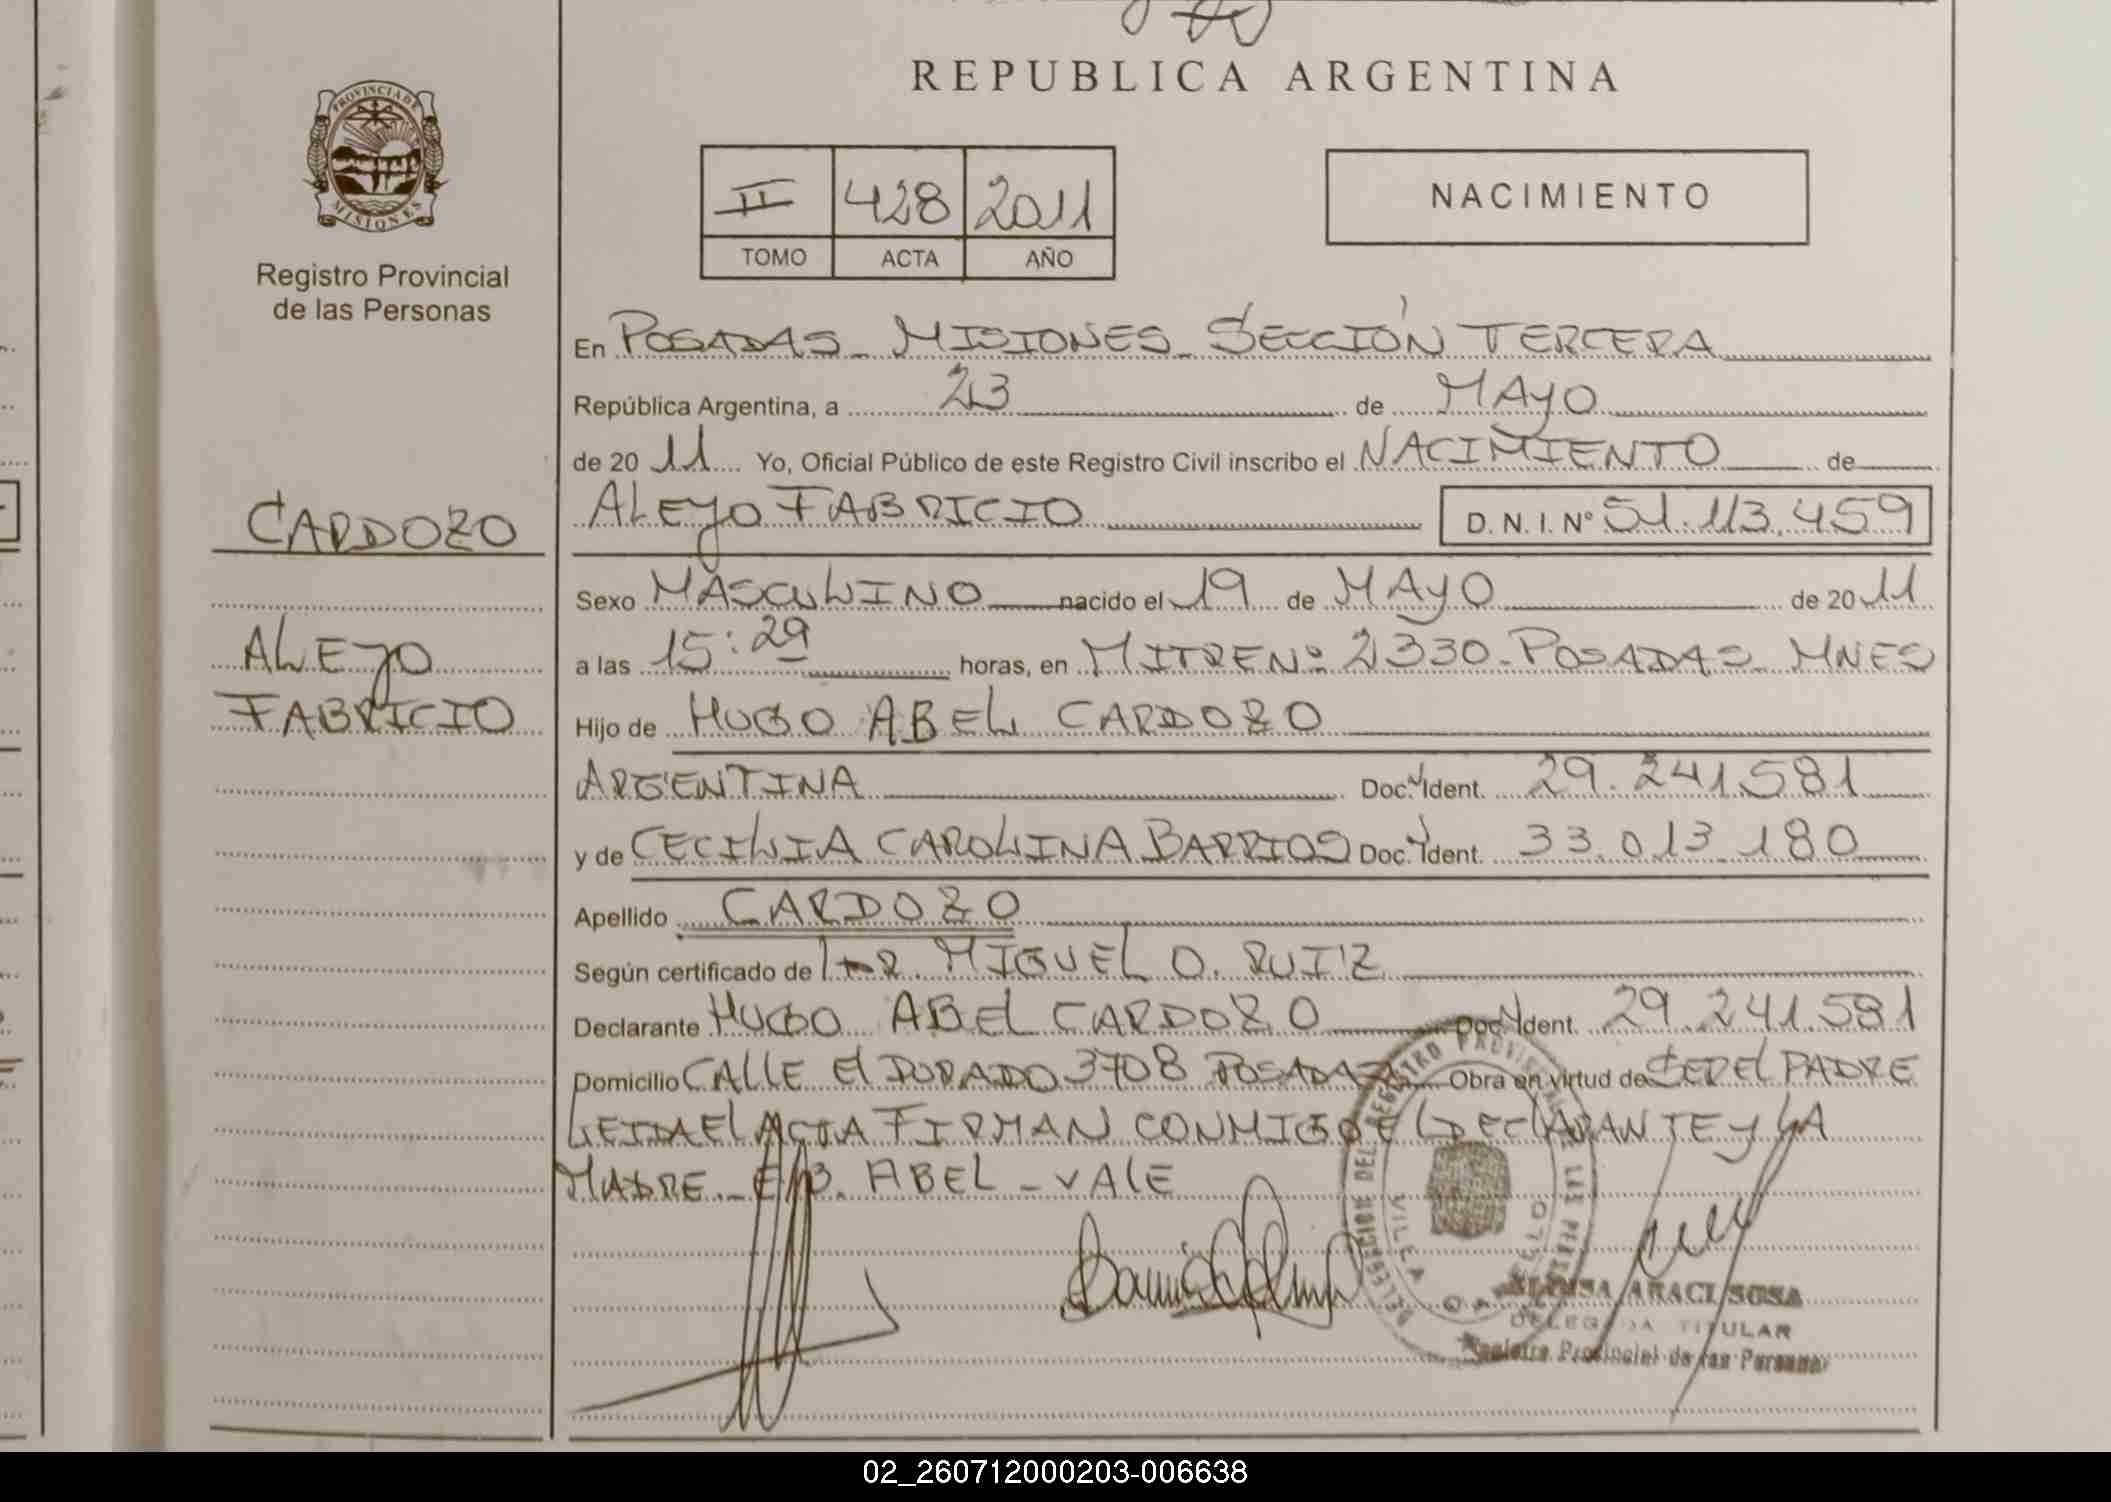 REPUBLICA ARGENTINA
PROVINCIA DE
MISIONES
Registro Provincial
de las Personas
II 428 2011
TOMO ACTA AÑO
NACIMIENTO
En POSADAS - MISIONES - SECCIÓN TERCERA
República Argentina, a 23 de MAYO
de 20 11 Yo, Oficial Público de este Registro Civil inscribo el NACIMIENTO de
CARDOZO
ALEJO FABRICIO D. N. I. Nº 51.113.459
Sexo MASCULINO nacido el 19 de MAYO de 20 11
ALEJO
FABRICIO
a las 15:29 horas, en MITRE Nº 2330 - POSADAS - MNES
Hijo de HUGO ABEL CARDOZO
ARGENTINA Doc. Ident. 29.241.581
y de CECILIA CAROLINA BARRIOS Doc. Ident. 33.013.180
Apellido CARDOZO
Según certificado de MIGUEL O. RUIZ
Declarante HUGO ABEL CARDOZO Doc. Ident. 29.241.581
Domicilio CALLE ELDORADO 3708 POSADAS Obra en virtud de SER EL PADRE
LEIDA EL ACTA FIRMAN CONMIGO EL DECLARANTE Y LA
MADRE - E/B. ABEL - VALE
DELEGACION DEL REGISTRO PROVINCIAL DE LAS PERSONAS
VILLA CABELLO
ARACI SOSA
DELEGADA TITULAR
Registro Provincial de las Personas
02_260712000203-006638